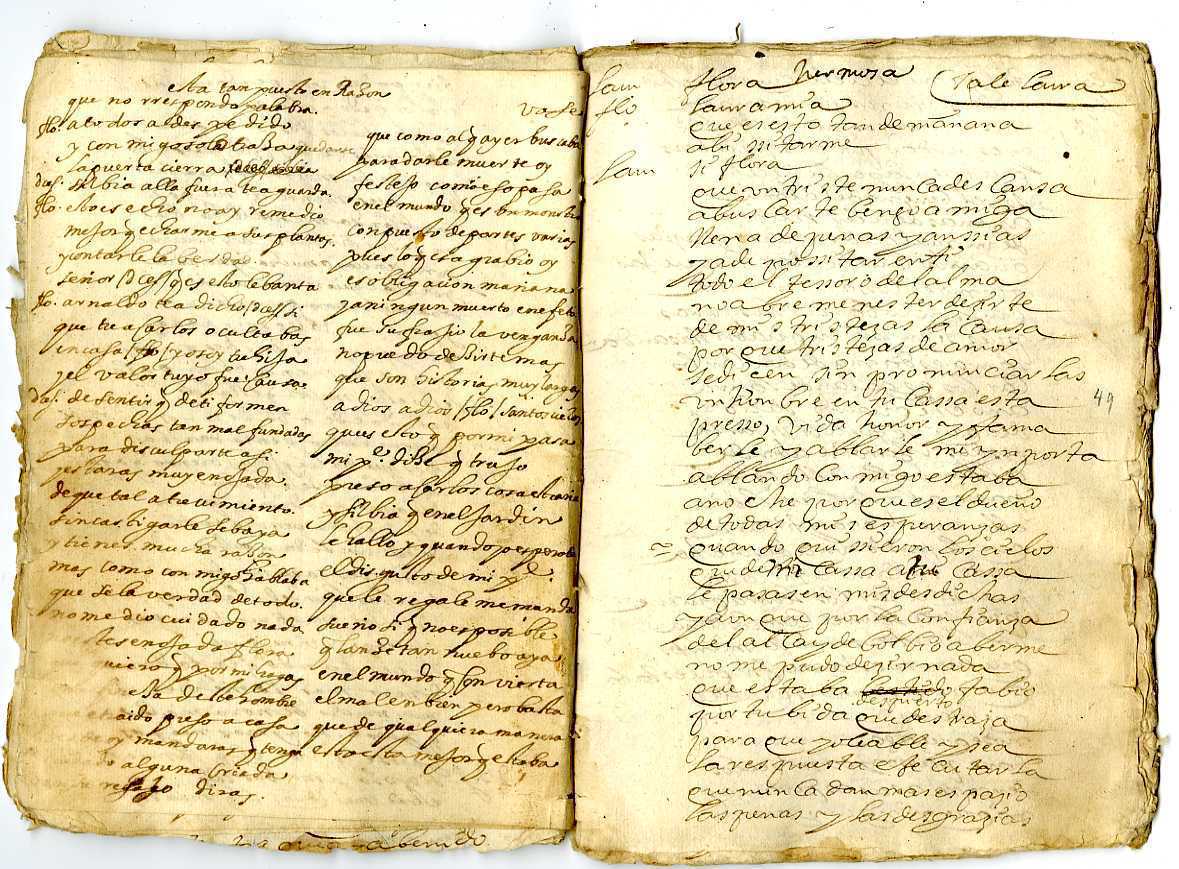 esta tan puesto en Razon
que no rresponde palabra.
vase
flo. a todos a despedido
y con migo solo trata quedarse
la puerta cierra
das. silbia alla fuera te aguarda.
flo. esto es echo no ay remedio
mejor q echarme a sus plantas.
y contarle la berdad
señor /das/ q es esto lebanta
flo. arnaldo te a dicho /das/ si
que tu a Carlos ocultabas
en casa /flo/ y o soy tu hija
y el valor tuyo fue causa.
das. de sentir q de ti formen
sospechas tan mal fundadas
para disculparte asi
y estaras muy enojada
de que tal atrevimiento.
sin castigarle se baya
y tienes mucha rason
mas como con migo hablaba
que se la verdad de todo.
no me dio cuidado nada
tes enojada flora
quiero q por mi hagas
este hombre
traido preso a casa
oy mandaras q tenga
do alguna criada
regalo diras.
que como al q ayer buscaba
para darle muerte oy
festejo como eso pasa
en el mundo q es un monstro
conpuesto de partes varias
pues lo q era grabio oy
es obligacion mañana
y a ningun muerto en efeto
fue sufrasio la venganza
no puedo desirte mas
que son historias muy largas
a dios a dios /flo/ santos cielos
que es esto q por mi pasa
mi pe. dise q trajo
preso a Carlos cosa estraña
y silbia q en el jardin
le hallo y quando
el disgusto de mi pe.
que le regale me manda
sueño si q no es posible
q lanze tan nuebo aya
en el mundo q conbierta
el mal en bien pero basta
que de qualquiera manera
esto esta mejor q estaba
ya benido.
lau flora hermosa
Vale laura
flo laura mia
que es esto tan de mañana
a bisitarme
lau si flora
que un triste nunca descansa
a buscarte bengo amiga
llena de penas y anssias
y a depossitar en ti
todo el tessoro del alma
no abre menester decirte
de mis tristezas la causa
por que tristezas de amor
se dicen sin pronunciarlas
un honbre en tu cassa esta
49
presso, vida honor y fama
berle y ablarle me ynporta
ablando con migo estaba
anoche por que es el dueño
de todas mis esperanzas
quando quissieron los cielos
que de mi cassa a tu cassa
le pasasen mis desdichas
y aun que por la confianza
del alcayde bolbio a berme
no me pudo dezir nada
que estaba despierto fabio
por tu bida que des traza
para que yo le able y sea
la respuesta efecutarla
que nunca dan mas espazio
las penas y las desgrazias